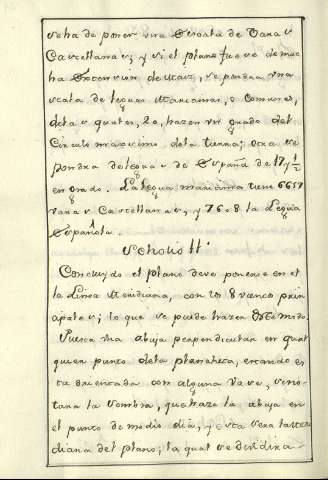 se ha de poner una Escala de Varas
Castellanas; y si el plano fuese de mu
cha Extencion de Mar, se pondra una
scala de leguas Maritimas, o Comunes,
de las quales, 20, hazen un grado del
Circulo maximo de la tierra; o sea se
pondra de leguas de España de 17 y 1/2
en grado. La legua maritima tiene 6651
varas Castellanas, y 7608 la Legua
Española.
Scholio II.
Concluydo el plano deve ponerse en el
la Linea Meridiana, con los 8 vientos prin
cipales; lo que se puede hazer deste modo
Puesta una abuja perpendicular en qual
quier punto de la plancheta, estando es
ta orientada con alguna vase, se no
tara la sombra, que haze la abuja en
el punto de medio dia, y esta sera la Meri
diana del plano; la qual se dividira